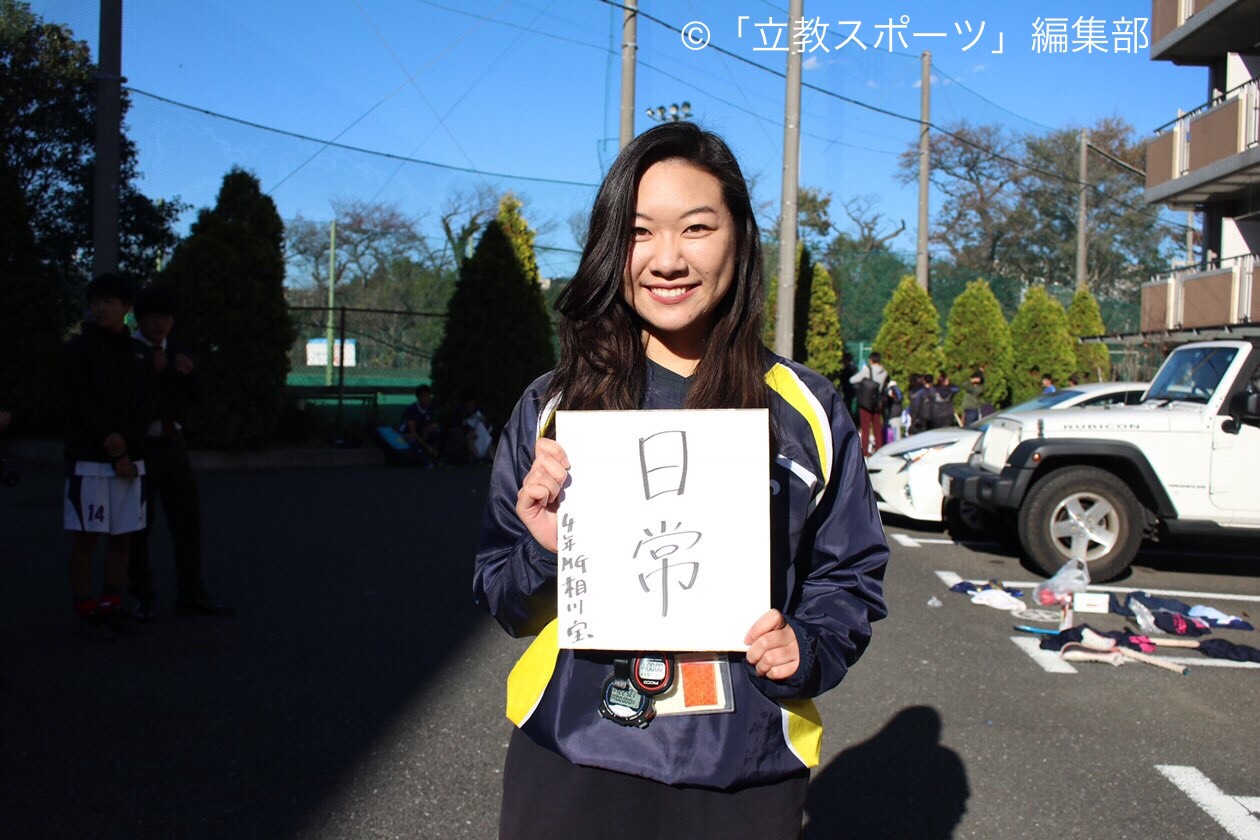 ©「立教スポーツ」編集部
日常
4年MG相川宝
RUBICON
14